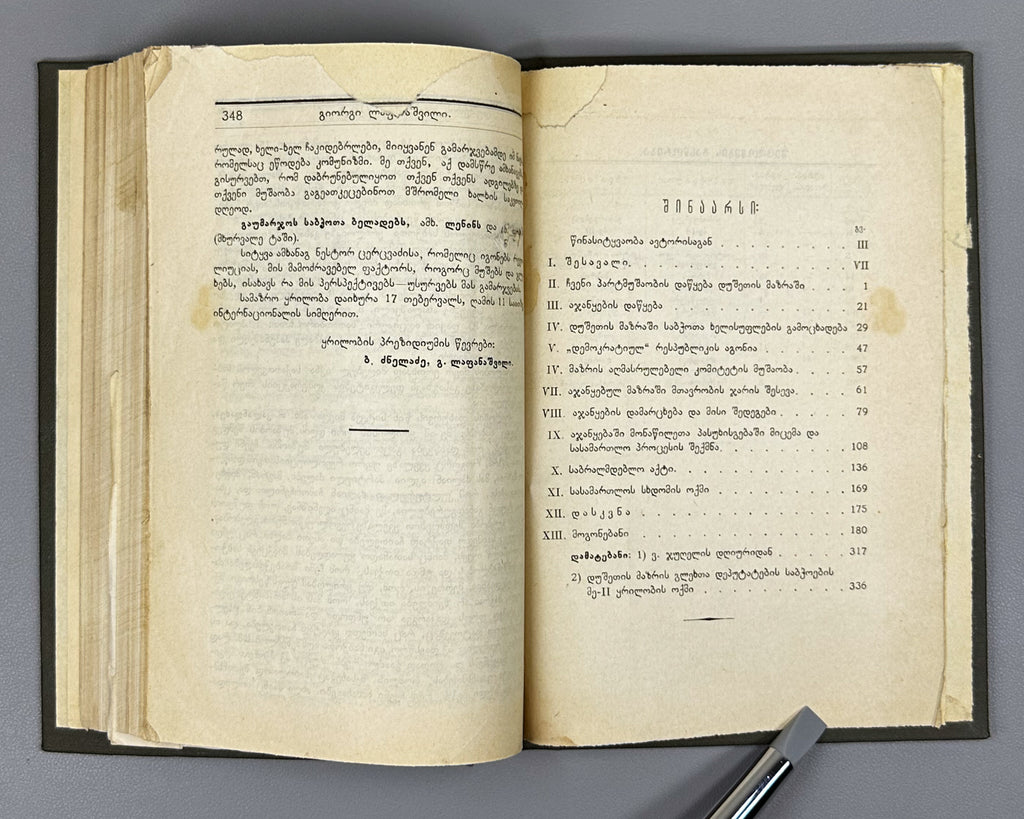 348 გიორგი ლაფანაშვილი.
რულად, ხელი-ხელ ჩაკიდებრლები, მიიყვანენ გამარჯვებამდე იმ
რომელსაც ეწოდება კომუნიზმი. მე თქვენ, აქ დამსწრე
გისურვებთ, რომ დაბრუნებულიყოთ თქვენ თქვენს ადგილებზე
თქვენი მუშაობა გაგეათკეცებინოთ მშრომელი ხალხის
დღეოდ.
გაუმარჯოს საბჭოთა ბელადებს, ამხ. ლენინს და
(მხურვალე ტაში).
სიტყვა ამხანაგ ნესტორ ცერცვაძისა, რომელიც იგონებს
ლიუციას, მის მამოძრავებელ ფაქტორს, როგორც მუშებს და
ხებს, ისახავს რა მის პერსპექტივებს—უსურვებს მას გამარჯვებას.
სამაზრო ყრილობა დაიხურა 17 თებერვალს, ღამის 11
ინტერნაციონალის სიმღერით.
ყრილობის პრეზიდიუმის წევრები:
ბ. ძნელაძე, გ. ლაფანაშვილი.
შინაარსი:
გვ.
წინასიტყვაობა ავტორისაგან . . . . . . . . . . III
I. შესავალი. . . . . . . . . . . . . . . . VII
II. ჩვენი პარტმუშაობის დაწყება დუშეთის მაზრაში . . . . 1
III. აჯანყების დაწყება . . . . . . . . . . . . . 21
IV. დუშეთის მაზრაში საბჭოთა ხელისუფლების გამოცხადება 29
V. „დემოკრატიულ“ რესპუბლიკის აგონია . . . . . . . 47
IV. მაზრის აღმასრულებელი კომიტეტის მუშაობა. . . . . 57
VII. აჯანყებულ მაზრაში მთავრობის ჯარის შესევა. . . . . 61
VIII. აჯანყების დამარცხება და მისი შედეგები . . . . . . 79
IX. აჯანყებაში მონაწილეთა პასუხისგებაში მიცემა და
სასამართლო პროცესის შექმნა. . . . . . . . . . 108
X. საბრალმდებლო აქტი. . . . . . . . . . . . . 136
XI. სასამართლოს სხდომის ოქმი . . . . . . . . . . 169
XII. დასკვნა . . . . . . . . . . . . . . . . 175
XIII. მოგონებანი . . . . . . . . . . . . . . . 180
დამატებანი: 1) ვ. ჯუღელის დღიურიდან . . . . . . 317
2) დუშეთის მაზრის გლეხთა დეპუტატების საბჭოების
მე-II ყრილობის ოქმი . . . . . . . . . . . 336